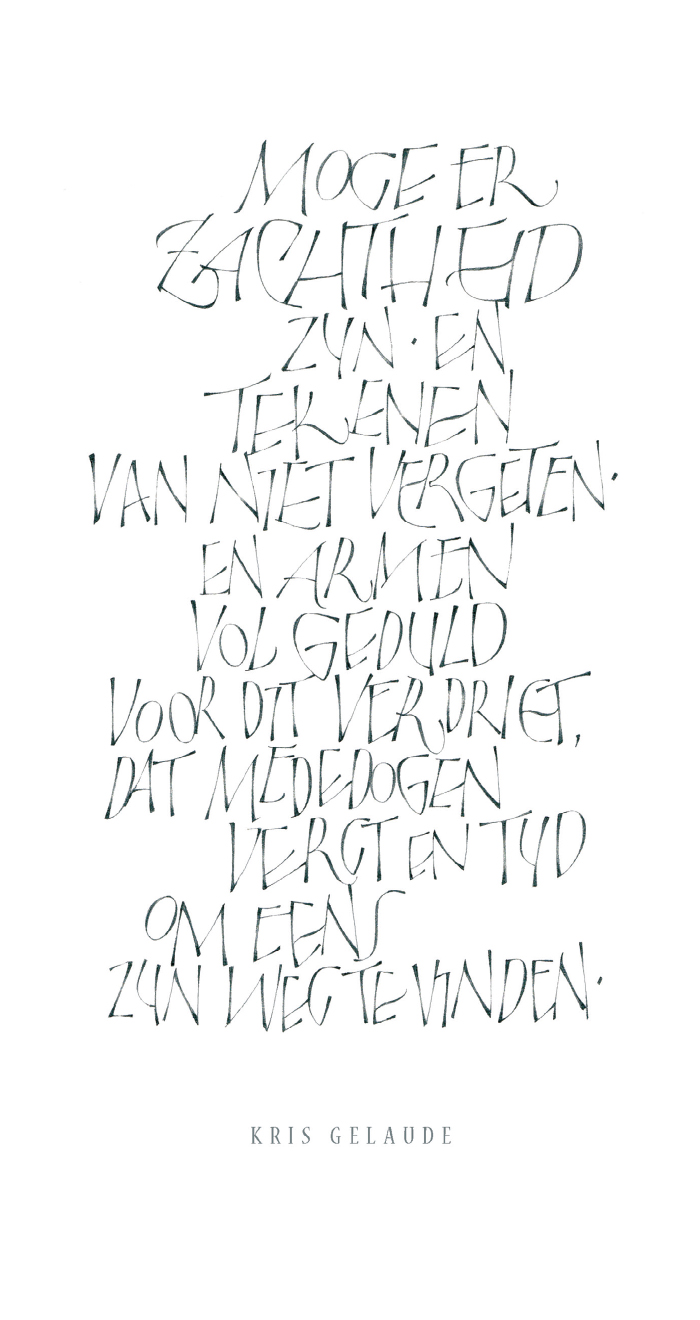 MOGE ER
ZACHTHEID
ZIJN · EN
TEKENEN
VAN NIET VERGETEN ·
EN ARMEN
VOL GEDULD
VOOR DIT VERDRIET,
DAT MEDEDOGEN
VERGT EN TIJD
OM EENS
ZIJN WEG TE VINDEN ·
KRIS GELAUDE